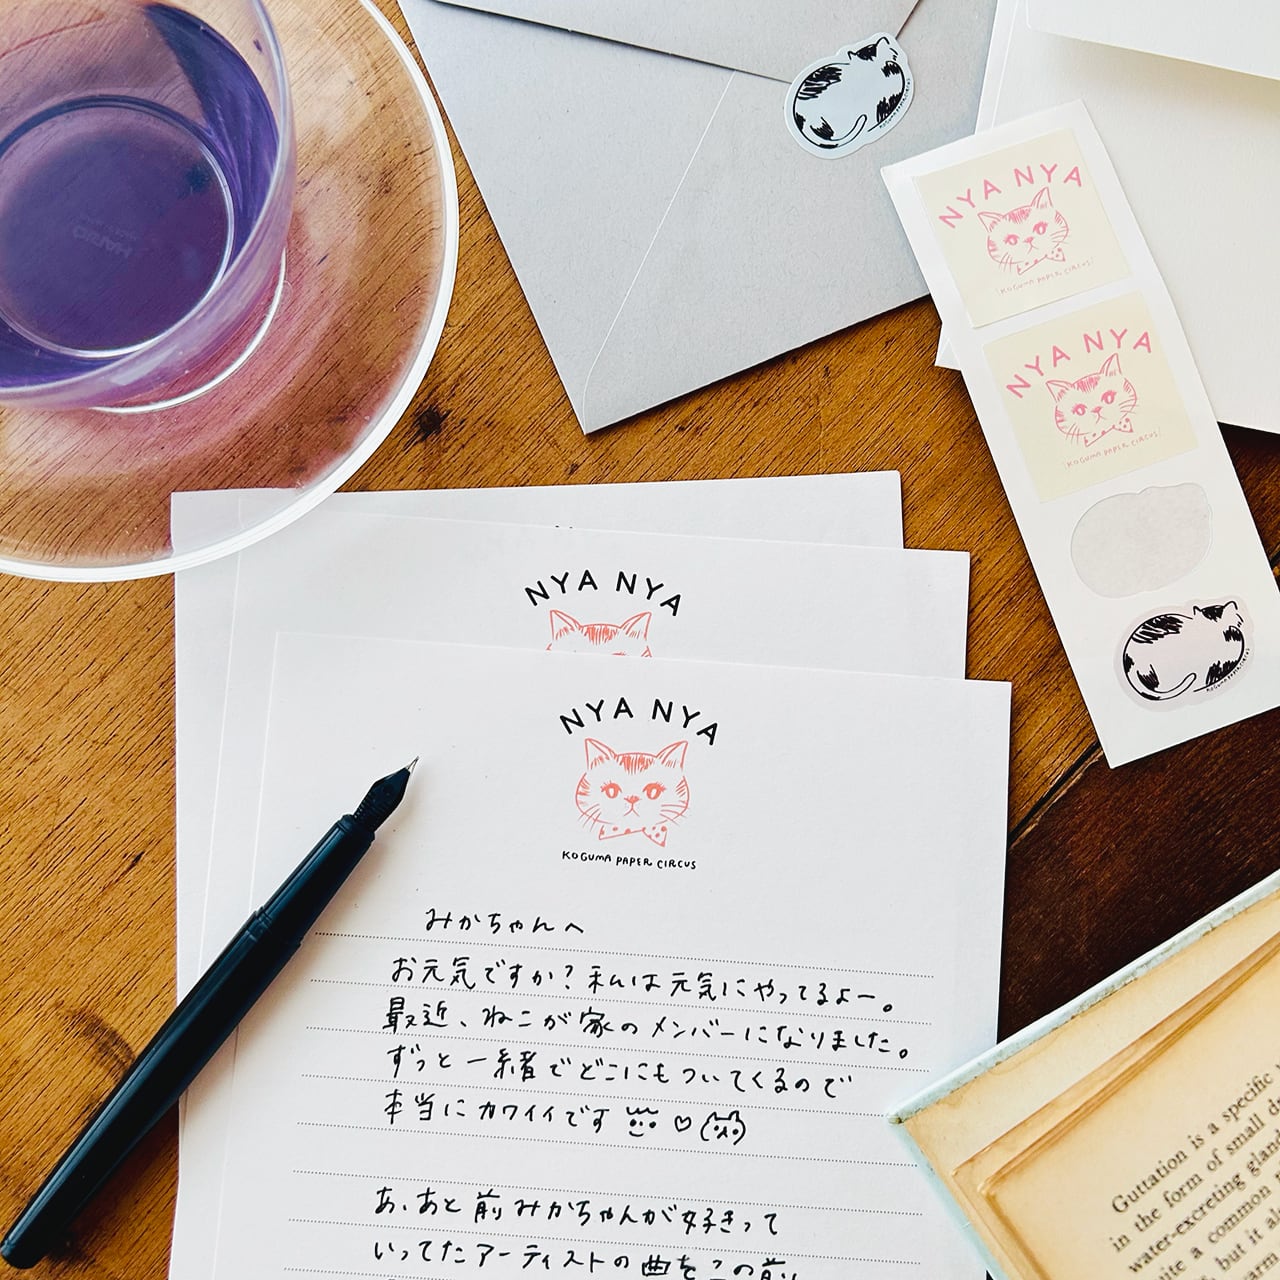 HARIO
KOGUMA PAPER CIRCUS
NYA NYA
KOGUMA PAPER CIRCUS
NYA NYA
KOGUMA PAPER CIRCUS
KOGUMA PAPER CIRCUS
NYA NYA
NYA NYA
KOGUMA PAPER CIRCUS
みかちゃんへ
お元気ですか?私は元気にやってるよー。
最近、ねこが家のメンバーになりました。
ずっと一緒でどこにもついてくるので
本当にカワイイです
あ、あと前みかちゃんが好きって
いってたアーティストの曲をこの前
Guttation is a specific
in the form of small
water-excreting
a common
but it